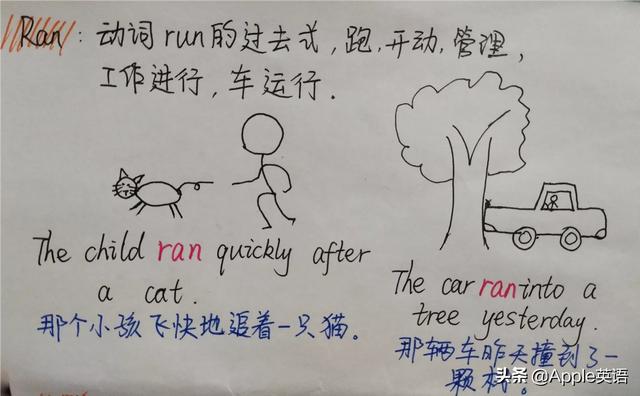 Ran：动词run的过去式，跑，开动，管理，
工作进行，车运行．
The child ran quickly after
a cat.
那个小孩飞快地追着一只猫。
The car ran into a
tree yesterday.
那辆车昨天撞到了一
颗树。
头条 @Apple英语